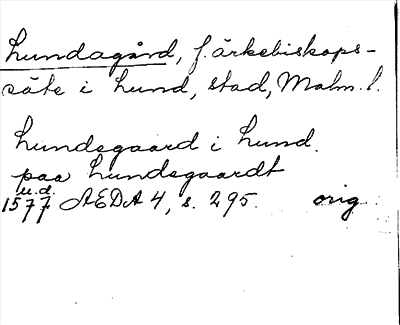 Lundagård, f. ärkebiskops-
säte i Lund, stad, Malm. l.
Lundegaard i Lund.
paa Lundegaardt
u.d.
1577 AEDA 4, s. 295. orig.